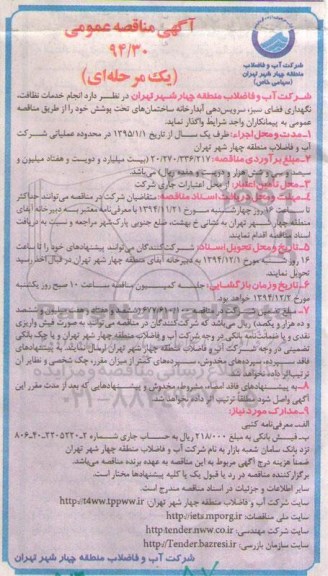 آگهی مناقصه عمومی
۹۴/۳۰
(یک مرحله‌ای)
شرکت آب و فاضلاب
منطقه چهار شهر تهران
(سهامی خاص)
شرکت آب و فاضلاب منطقه چهار شهر تهران در نظر دارد انجام خدمات نظافت،
نگهداری فضای سبز، سرویس‌دهی آبدارخانه ساختمان‌های تحت پوشش خود را از طریق مناقصه
عمومی به پیمانکاران واجد شرایط واگذار نماید.
۱-مدت و محل اجراء: ظرف یک سال از تاریخ ۱۳۹۵/۱/۱ در محدوده عملیاتی شرکت
آب و فاضلاب منطقه چهار شهر تهران
۲-مبلغ برآوردی مناقصه: ۲۰/۲۷۰/۳۳۶/۲۱۷ (بیست میلیارد و دویست و هفتاد میلیون و
سیصد و سی و شش هزار و دویست و هفده ریال) می‌باشد.
۳-محل تأمین اعتبار: از محل اعتبارات جاری شرکت
۴-مهلت و محل دریافت اسناد مناقصه: متقاضیان شرکت در مناقصه می‌توانند حداکثر
تا ساعت ۱۶ روز چهارشنبه مورخ ۱۳۹۴/۱۱/۲۱ با معرفی‌نامه معتبر به دبیرخانه آبفای
منطقه چهار شهر تهران به نشانی خ بهشت، ضلع جنوبی پارک‌شهر مراجعه و نسبت به دریافت
اسناد مناقصه اقدام نمایند.
۵-تاریخ و محل تحویل اسناد: شرکت‌کنندگان می‌توانند پیشنهادهای خود را تا ساعت
۱۶ روز شنبه مورخ ۱۳۹۴/۱۲/۱ به دبیرخانه آبفای منطقه چهار شهر تهران در قبال اخذ رسید
تحویل نمایند.
۶-تاریخ و زمان بازگشایی: جلسه کمیسیون مناقصه ساعت ۱۰ صبح روز یکشنبه
مورخ ۱۳۹۴/۱۲/۲ خواهد بود.
۷-مبلغ سپرده شرکت در مناقصه
و ده هزار و یکصد) ریال می‌باشد که شرکت‌کنندگان در مناقصه می‌توانند به صورت فیش واریزی
نقدی و یا ضمانت‌نامه بانکی در وجه شرکت آب و فاضلاب منطقه چهار شهر تهران و یا چک بانکی
تضمینی در وجه شرکت آب و فاضلاب منطقه چهار شهر تهران ارسال نمایند. به پیشنهادهای
فاقد سپرده، سپرده‌های مخدوش، سپرده‌های کمتر از میزان مقرر، چک شخصی و نظایر آن
ترتیب اثر داده نخواهد شد.
۸-به پیشنهادهای فاقد امضاء، مشروط، مخدوش و پیشنهادهایی که بعد از مدت مقرر این
آگهی واصل شود مطلقا ترتیب اثر داده نخواهد شد.
۹-مدارک مورد نیاز:
الف-معرفی‌نامه کتبی
ب- فیش بانکی به مبلغ ۲۱۸/۰۰۰ ریال به حساب جاری شماره
نزد بانک سامان شعبه بازار به نام شرکت آب و فاضلاب منطقه چهار شهر تهران
ضمنا هزینه درج آگهی مربوط به این مناقصه به عهده برنده مناقصه می‌باشد.
برگزارکننده مناقصه در رد یا قبول یک یا کلیه پیشنهادها مختار است.
سایر اطلاعات و جزئیات در اسناد مناقصه مندرج است.
سایت شرکت آب و فاضلاب منطقه چهار شهر تهران: http://t4ww.tppww.ir
سایت ملی مناقصات: http://iets.mporg.ir
سایت شرکت مهندسی: http:tender.nww.co.ir
سایت سازمان بازرسی: http://Tender.bazresi.ir
شرکت آب و فاضلاب منطقه چهار شهر تهران